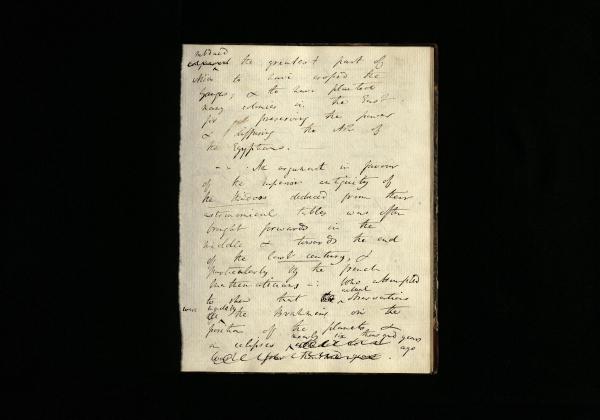 subdued
the greatest part of
Asia to have crossed the
Ganges, & to have planted
many colonies in the East
for preserving the power
& diffusing the Arts of
the Egyptians. —
— An argument in favour
of the superior antiquity of
the Hindoos deduced from their
astronomical tables was often
brought forwards in the
middle & towards the end
of the last century, &
particularly by the french
Mathematicians: Who attempted
to show that actual observations
were made by the Brahmins on the
position of the planets &
on eclipses nearly six thousand years
ago